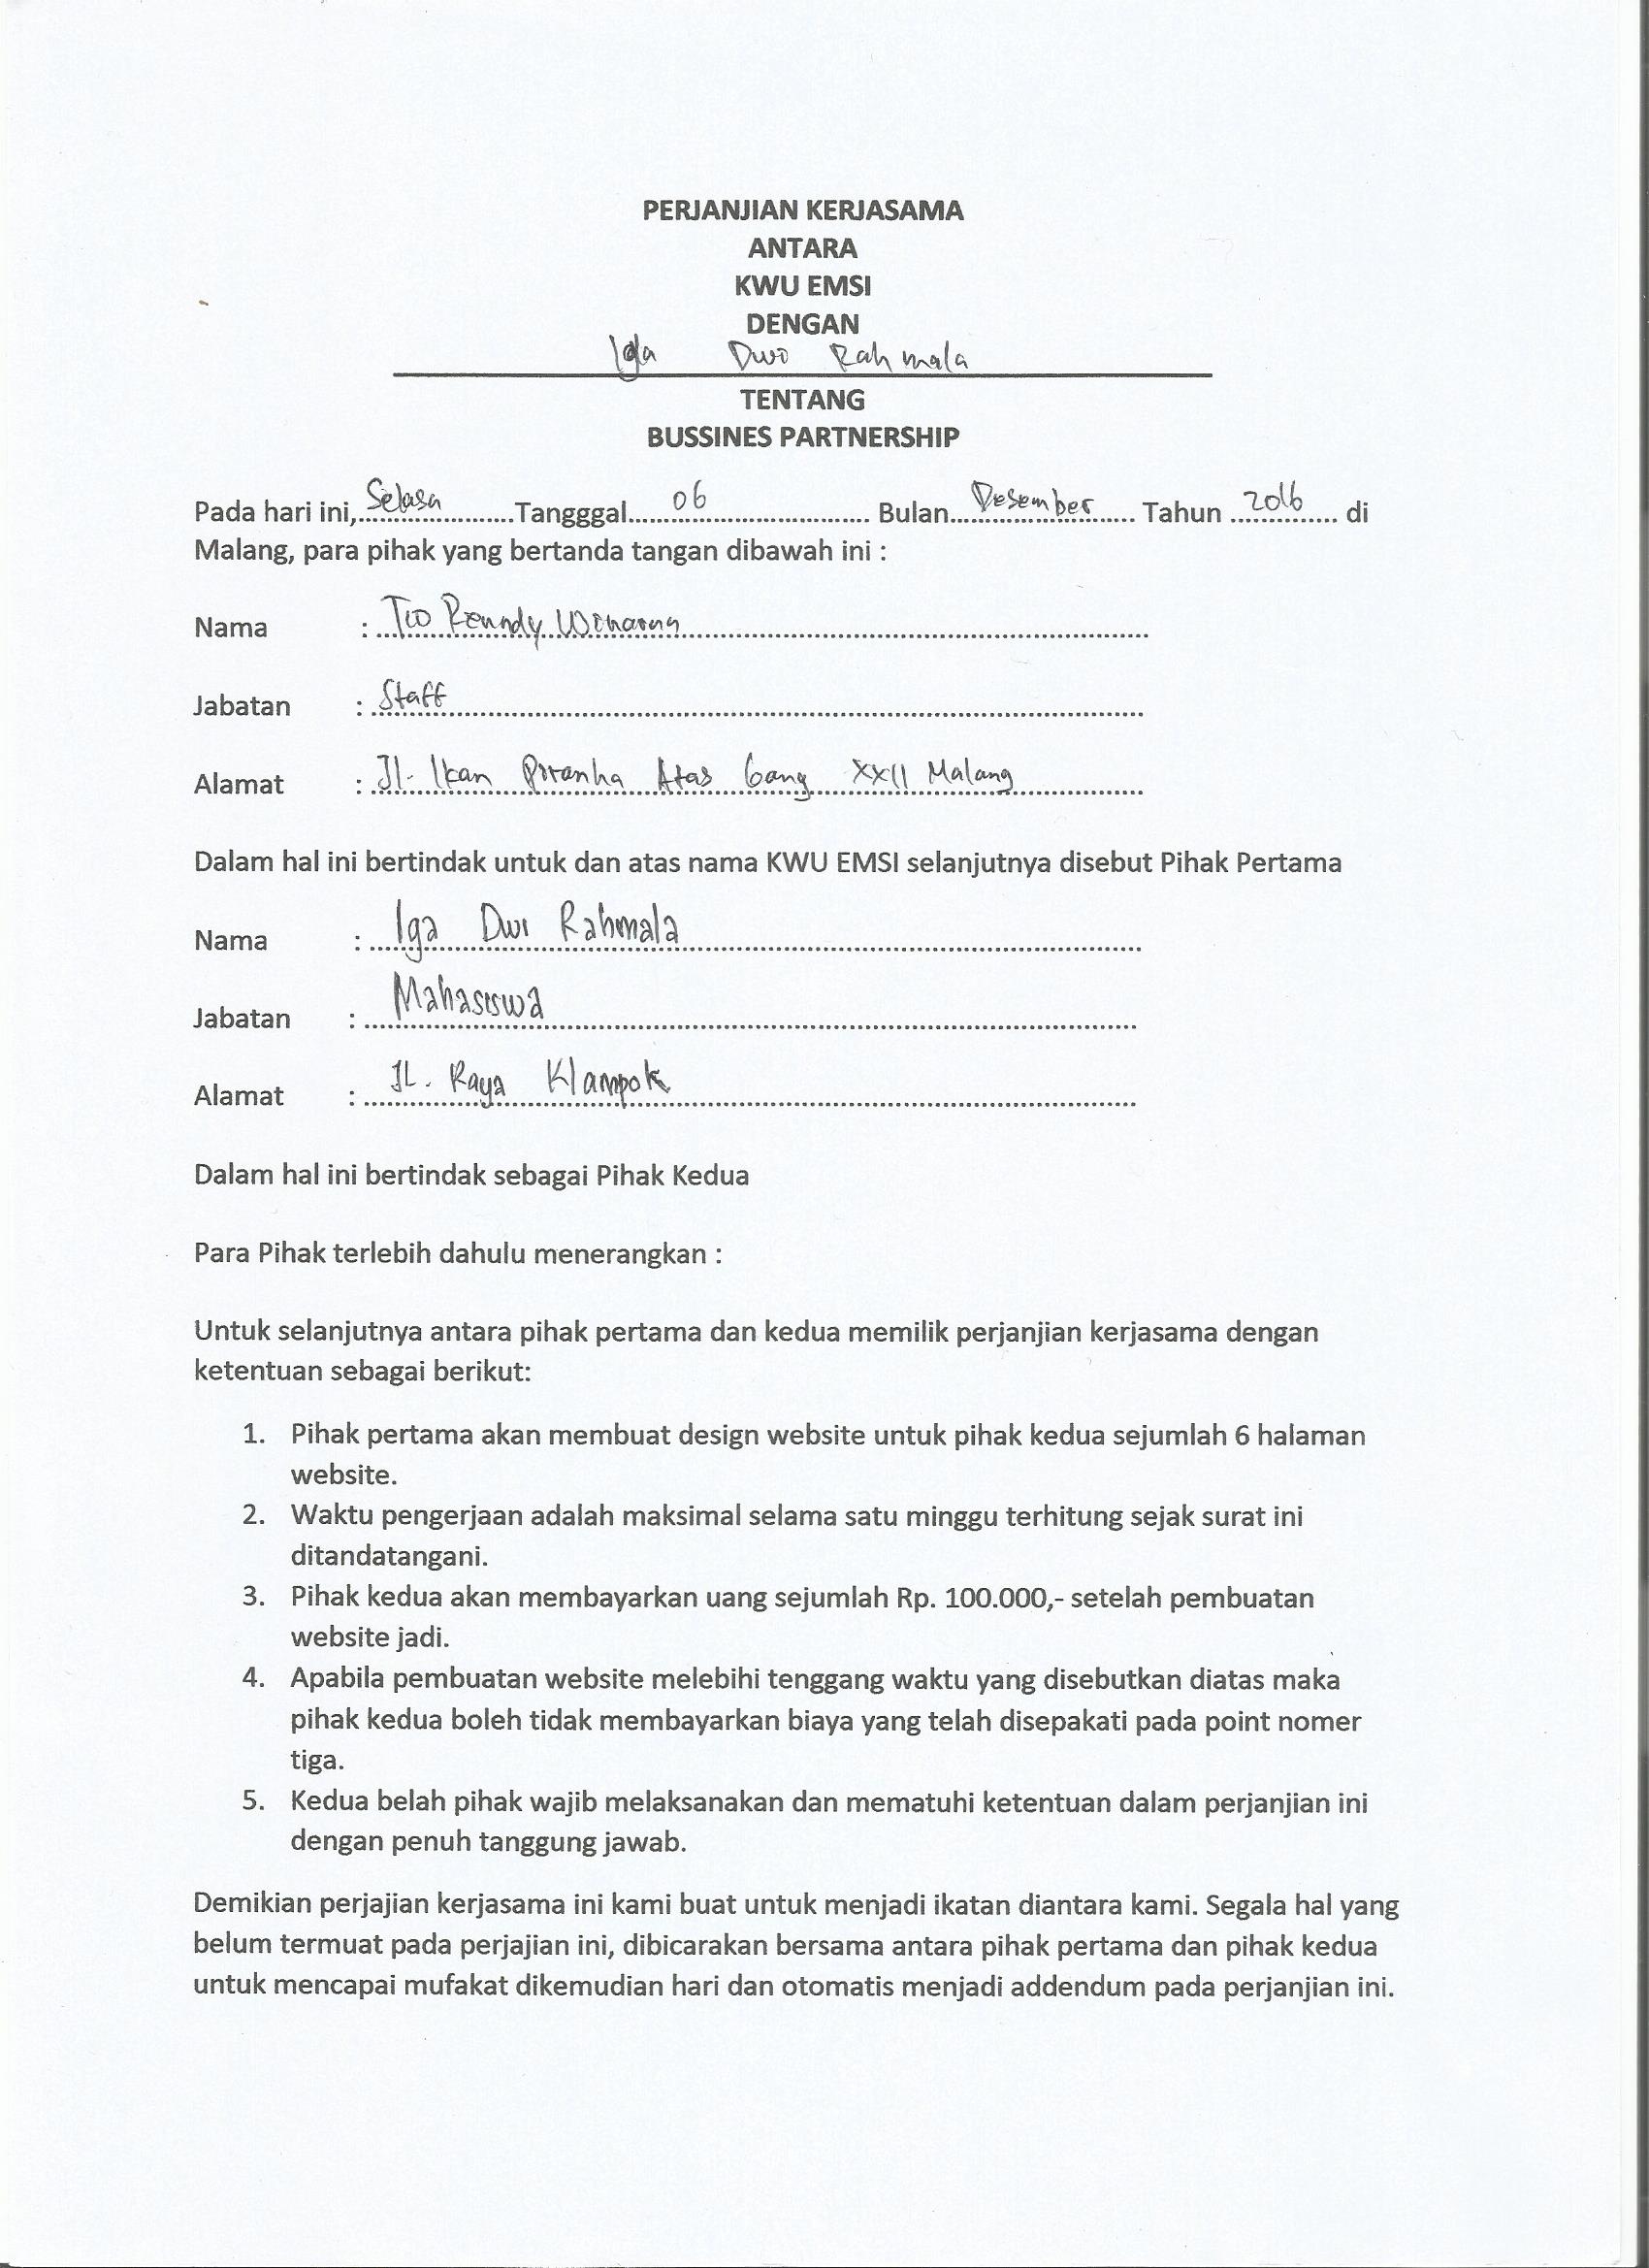 PERJANJIAN KERJASAMA
ANTARA
KWU EMSI
DENGAN
Iga Dwi Rahmala
TENTANG
BUSSINES PARTNERSHIP
Pada hari ini, Selasa Tangggal 06 Bulan Desember Tahun 2016 di
Malang, para pihak yang bertanda tangan dibawah ini :
Nama : Tio
Jabatan : Staff
Alamat : Jl. Ikan Piranha Atas Gang XXII Malang
Dalam hal ini bertindak untuk dan atas nama KWU EMSI selanjutnya disebut Pihak Pertama
Nama : Iga Dwi Rahmala
Jabatan : Mahasiswa
Alamat : JL. Raya Klampok
Dalam hal ini bertindak sebagai Pihak Kedua
Para Pihak terlebih dahulu menerangkan :
Untuk selanjutnya antara pihak pertama dan kedua memilik perjanjian kerjasama dengan
ketentuan sebagai berikut:
1. Pihak pertama akan membuat design website untuk pihak kedua sejumlah 6 halaman
website.
2. Waktu pengerjaan adalah maksimal selama satu minggu terhitung sejak surat ini
ditandatangani.
3. Pihak kedua akan membayarkan uang sejumlah Rp. 100.000,- setelah pembuatan
website jadi.
4. Apabila pembuatan website melebihi tenggang waktu yang disebutkan diatas maka
pihak kedua boleh tidak membayarkan biaya yang telah disepakati pada point nomer
tiga.
5. Kedua belah pihak wajib melaksanakan dan mematuhi ketentuan dalam perjanjian ini
dengan penuh tanggung jawab.
Demikian perjajian kerjasama ini kami buat untuk menjadi ikatan diantara kami. Segala hal yang
belum termuat pada perjajian ini, dibicarakan bersama antara pihak pertama dan pihak kedua
untuk mencapai mufakat dikemudian hari dan otomatis menjadi addendum pada perjanjian ini.